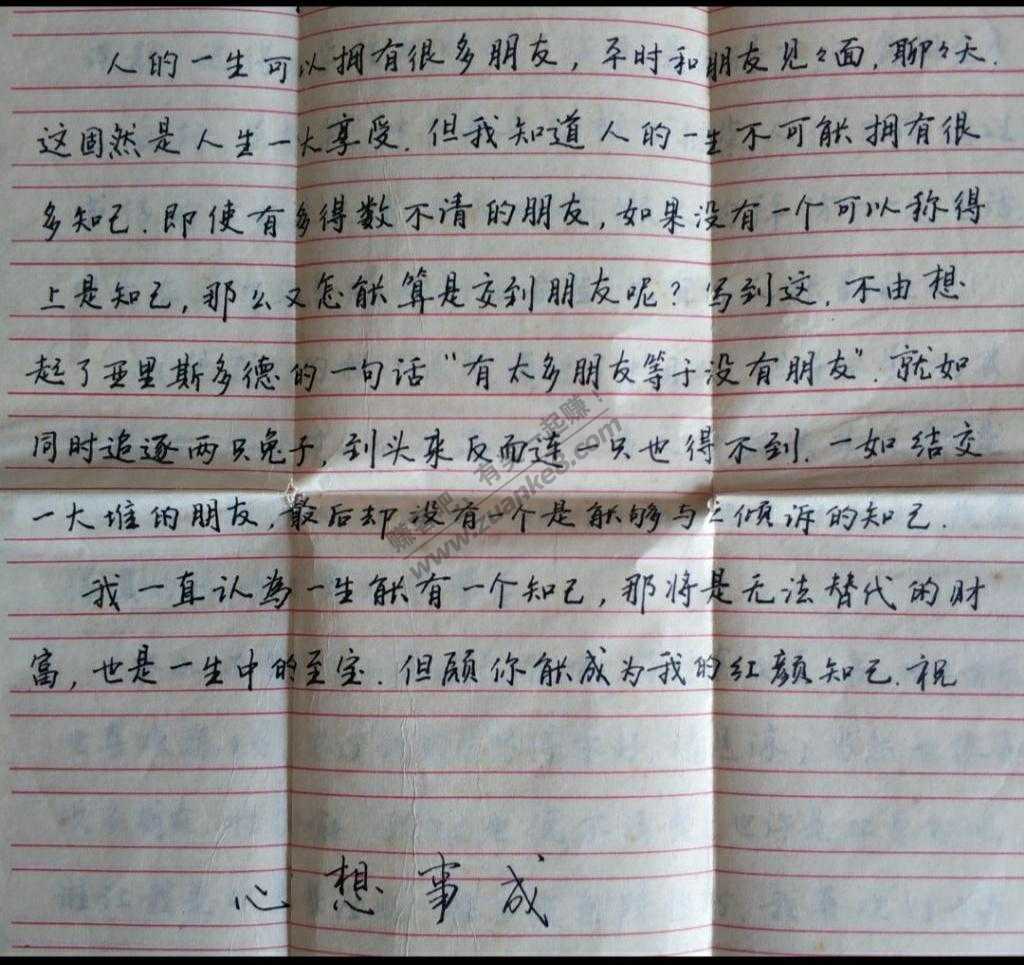 人的一生可以拥有很多朋友，平时和朋友见々面，聊々天．
这固然是人生一大享受．但我知道人的一生不可能拥有很
多知己．即使有多得数不清的朋友，如果没有一个可以称得
上是知己，那么又怎能算是交到朋友呢？写到这，不由想
起了亚里斯多德的一句话“有太多朋友等于没有朋友”．就如
同时追逐两只兔子，到头来反而连一只也得不到．一如结交
一大堆的朋友，最后却没有一个是能够与之倾诉的知己．
我一直认為一生能有一个知己，那将是无法替代的财
富，也是一生中的至宝．但愿你能成为我的红颜知己．祝
心想事成
www.zuanke8.com